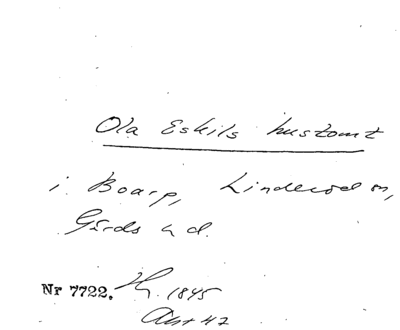 Ola Eskils hustomt
i Boarp, Linderöds sn,
Gärds hd.
Nr 7722. 1845
Akt 47